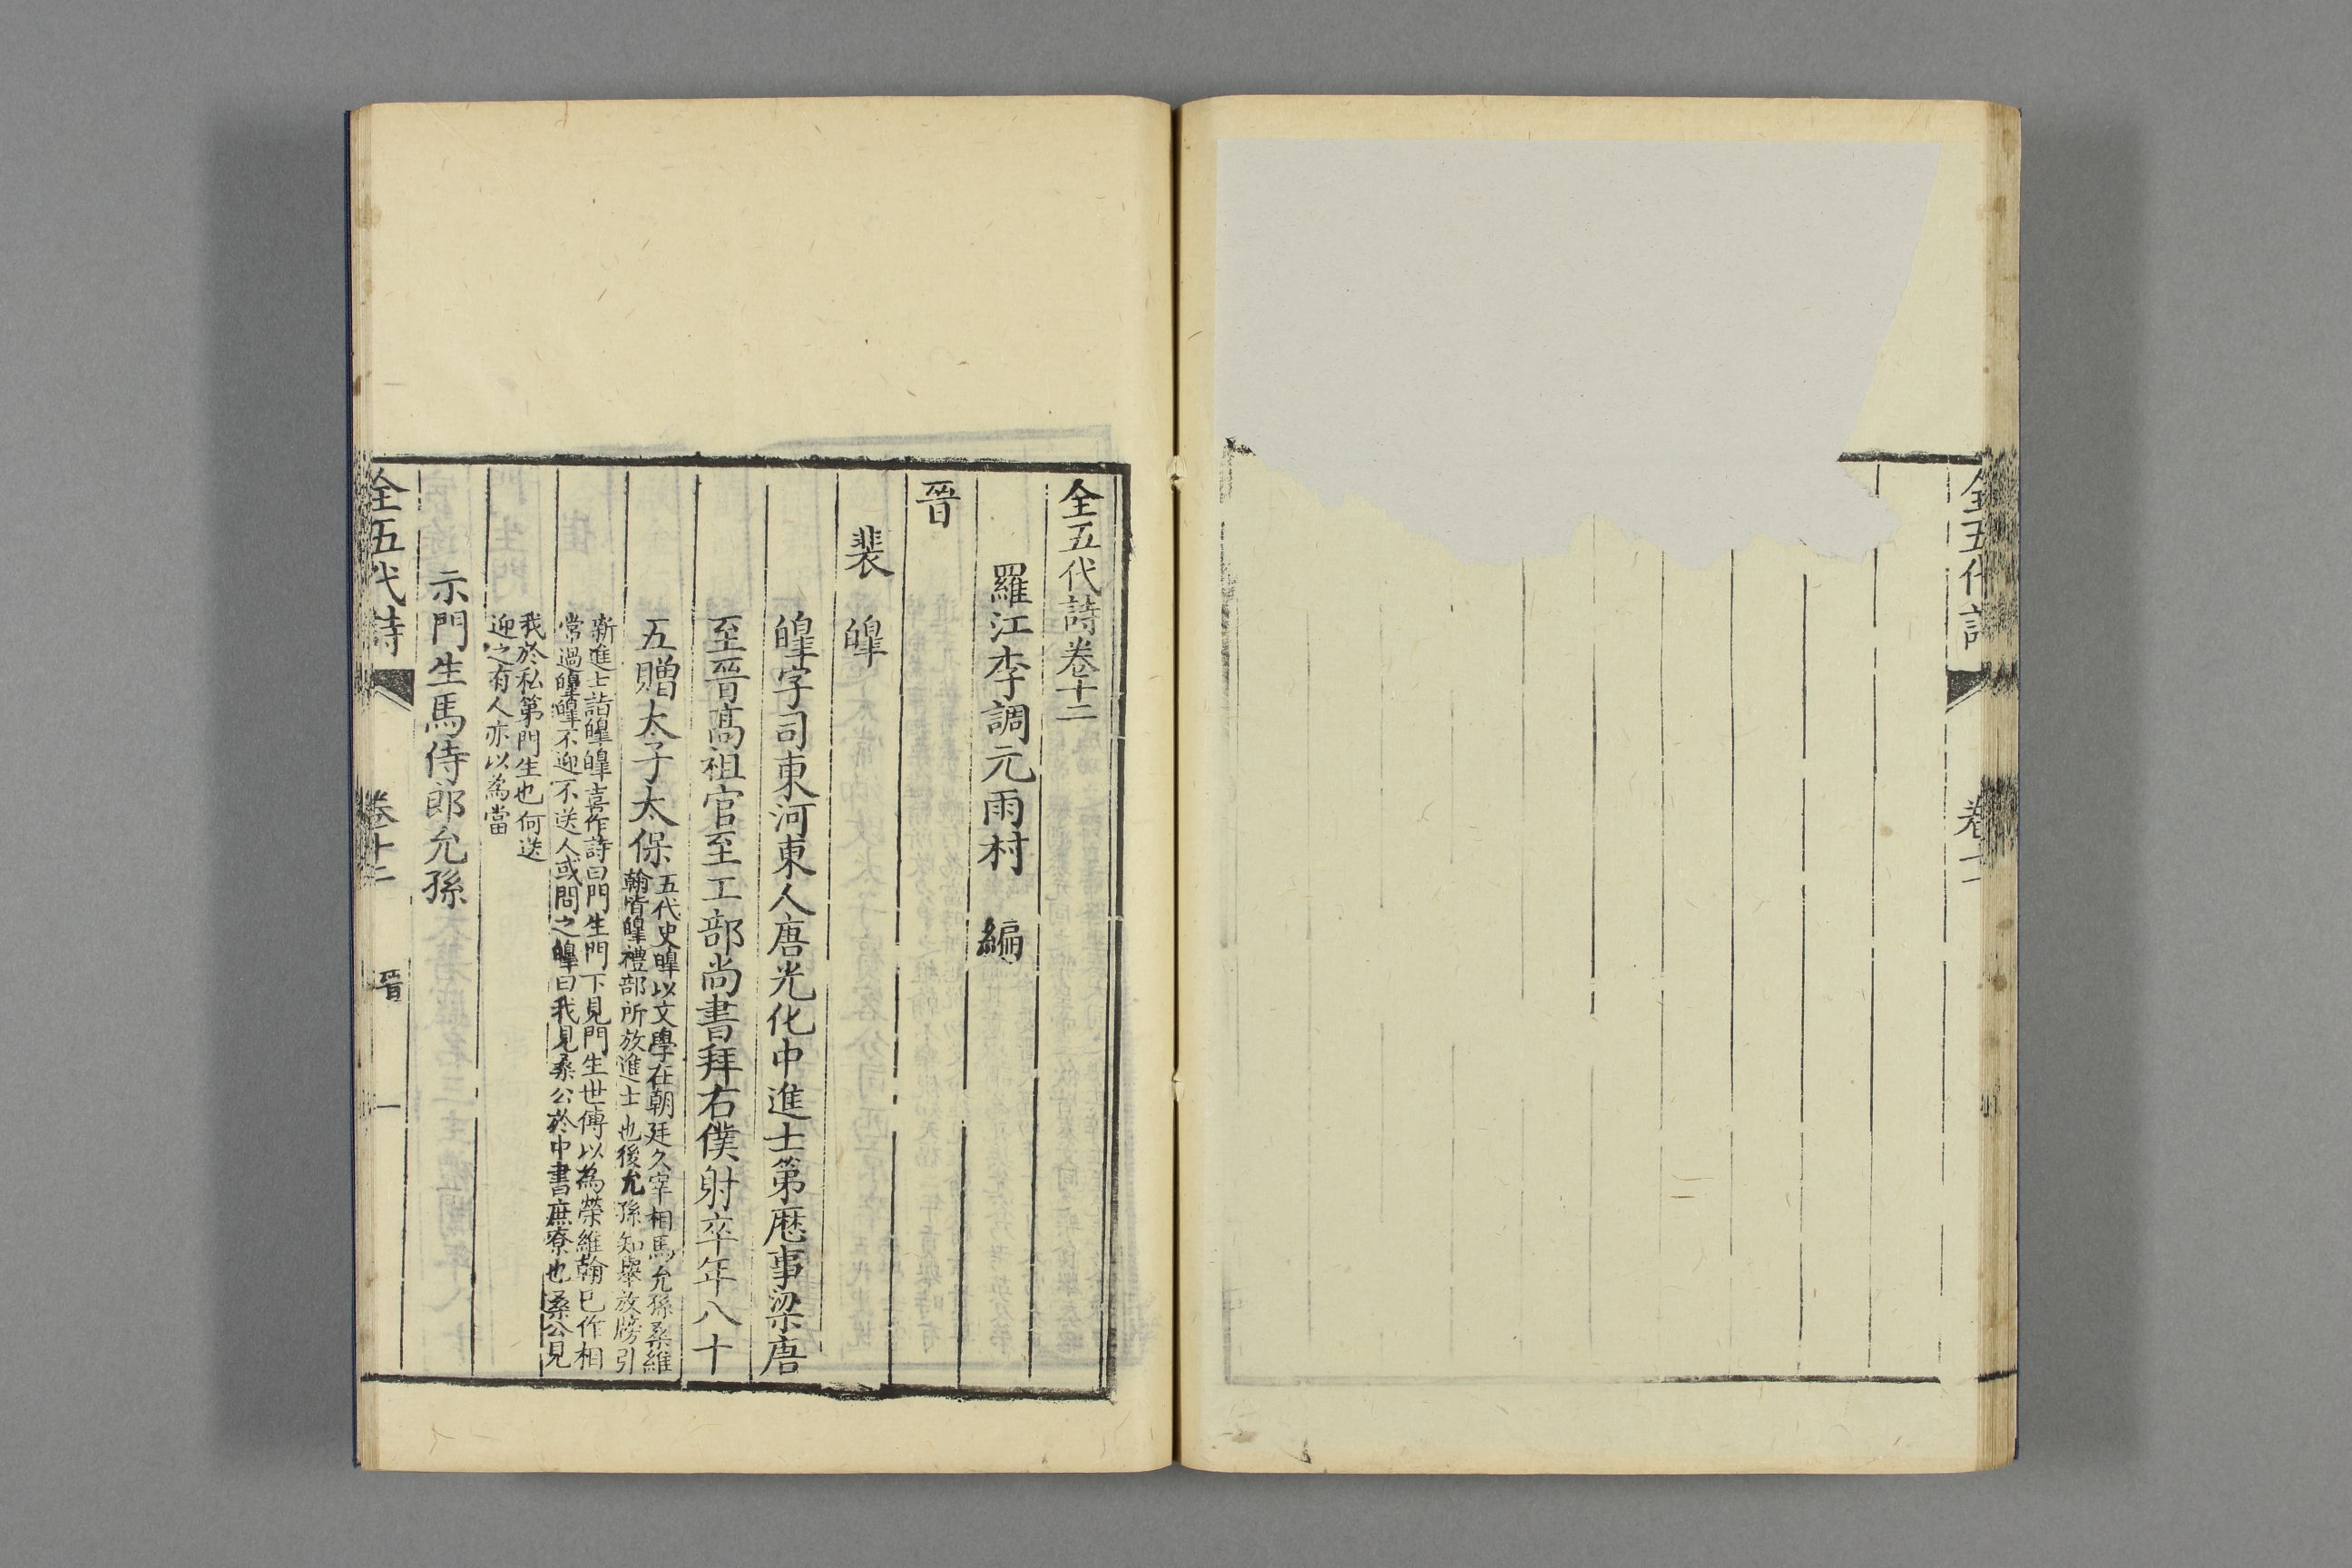 全五代詩 卷十一
全五代詩卷十二
羅江李調元雨村 編
晉
裴 皥
皥字司東河東人唐光化中進士第厯事梁唐
至晉髙祖官至工部尚書拜右僕射卒年八十
五贈太子太保
五代史皥以文學在朝廷久宰相馬允孫桑維
翰皆皥禮部所放進士也後允孫知舉放牓引
新進士詣皥皥喜作詩曰門生門下見門生世傳以為榮維翰已作相
常過皥皥不迎不送人或問之皥曰我見桑公於中書庶寮也桑公見
我於私第門生也何送
迎之有人亦以為當
示門生馬侍郎允孫
全五代詩 卷十二 晉 一